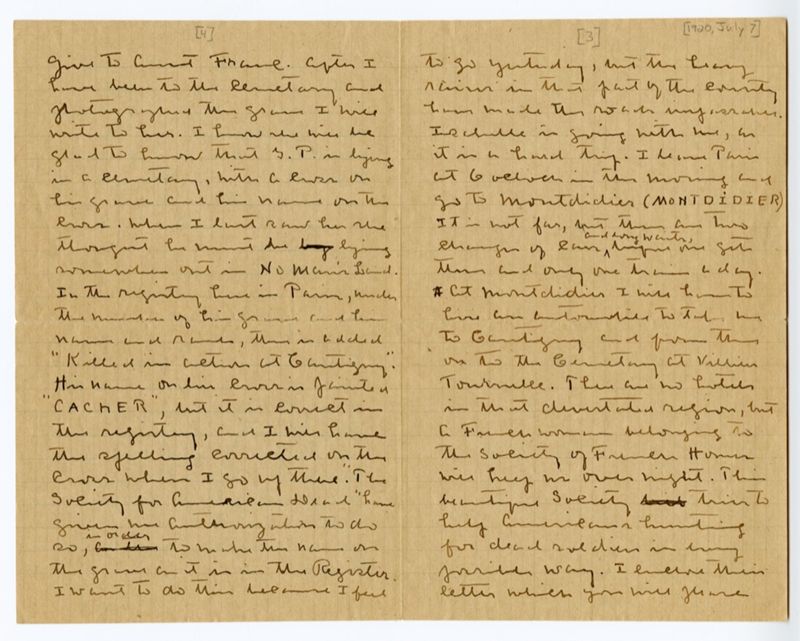 [1920, July 7]
[3]
to go yesterday, but the heavy
rains in that part of the country
have made the roads impassable.
Isabelle is going with me, as
it is a hard trip. I leave Paris
at 6 oclock in the morning and
go to Montdidier (MONTDIDIER)
It is not far, but there are two
changes of cars, and long waits, before one gets
there and only one train a day.
At Montdidier I will have to
hire an automobile to take me
to Cantigny and from there
on to the Cemetary at Villers
Tournelle. There are no hotels
in that devastated region, but
a French woman belonging to
the Society of French Homes
will keep us over night. This
beautiful Society tries to
help Americans hunting
for dead soldiers in every
possible way. I enclose their
letter which you will please
[4]
give to Aunt Frane. After I
have been to the Cemetary and
photographed the grave I will
write to her. I know she will be
glad to know that G. P. is lying
in a Cemetary, with a Cross on
his grave and his name on the
Cross. When I last saw her she
thought he must be lying
somewhere out in No Man's Land.
In the registry here in Paris, under
the number of his grave and his
name and rank, there is added
"Killed in action at Cantigny".
His name on his Cross is painted
"CACHER", but it is correct in
the registry, and I will have
the spelling corrected on the
Cross when I go up there. "The
Society for American Dead" have
given me authorization to do
so, in order to make the name on
the grave as it is in the Register.
I want to do this because I feel